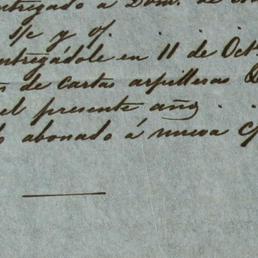 ntregado á Dom. de
S/c y of.
ntregádole en 11 de Oct
s de cartas arpilleras
el presente año
o abonado á nueva c/